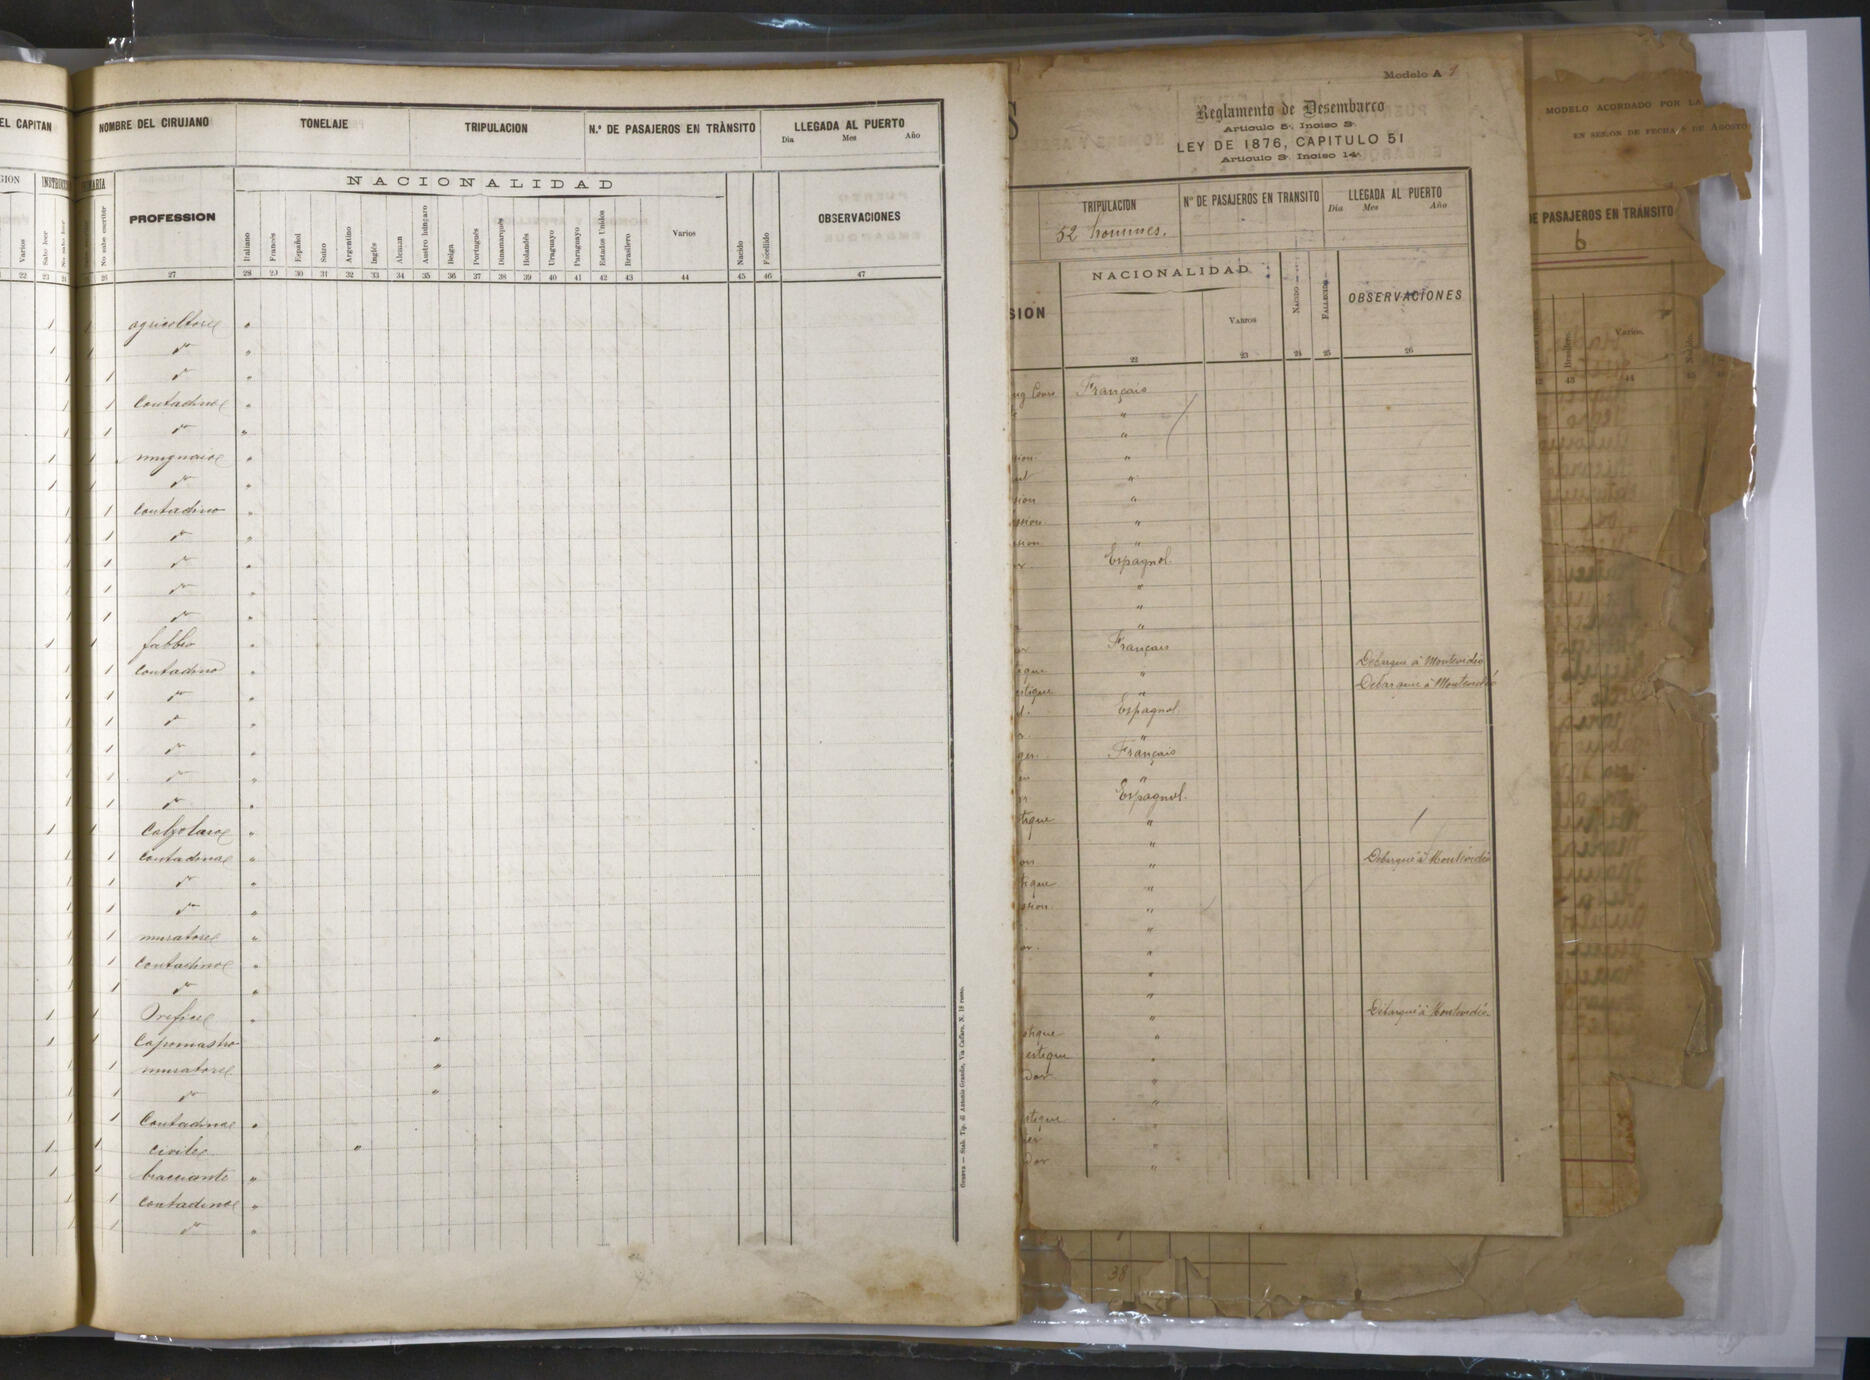 EL CAPITAN
NOMBRE DEL CIRUJANO
TONELAJE
TRIPULACION
N.º DE PASAJEROS EN TRÀNSITO
LLEGADA AL PUERTO
Dia Mes Año
NACIONALIDAD
PROFESSION
OBSERVACIONES
Varios
Sabe leer
No sabe leer
No sabe escribir
Italiano
Francés
Español
Suizo
Argentino
Inglés
Aleman
Austro húngaro
Belga
Portugués
Dinamarqués
Holandés
Uruguayo
Paraguayo
Estados Unidos
Brasilero
Varios
Nacido
Fallecido
22 23 24 26 27 28 29 30 31 32 33 34 35 36 37 38 39 40 41 42 43 44 45 46 47
1 1 agricoltore "
1 1 do "
1 1 do "
1 1 Contadino "
1 1 do "
1 1 mugnaio "
1 1 do "
1 1 contadino "
1 1 do "
1 1 do "
1 1 do "
1 1 do "
1 1 fabbro "
1 1 contadino "
1 1 do "
1 1 do "
1 1 do "
1 1 do "
1 1 do "
1 1 Calzolaio "
1 1 contadina "
1 1 do "
1 1 do "
1 1 muratore "
1 1 contadino "
1 1 do "
1 1 Orefice "
1 1 Capomastro "
1 1 muratore "
1 1 do "
1 1 Contadina "
1 1 civile "
1 1 bracciante "
1 1 contadino "
1 1 do "
Genova — Stab. Tip. di Antonio Grandis, Via Caffaro, N. 18 rosso.
Modelo A 1
Reglamento de Desembarco
Articulo 5. Inciso 3.
LEY DE 1876, CAPITULO 51
Articulo 3. Inciso 14.
TRIPULACION
52 hommes.
Nº DE PASAJEROS EN TRANSITO
LLEGADA AL PUERTO
Dia Mes Año
NACIONALIDAD
SION
Varios
Nacido
Fallecido
OBSERVACIONES
22 23 24 25 26
Français
"
"
"
"
"
"
"
Espagnol.
"
"
"
Français
" Débarqué à Montevidéo
" Débarqué à Montevidéo
Espagnol.
"
Français
"
Espagnol.
"
"
" Débarqué à Montevidéo
"
"
"
"
"
"
" Débarqué à Montevidéo.
"
"
"
"
"
"
"
38
MODELO ACORDADO POR LA
EN SESION DE FECHA DE AGOSTO
DE PASAJEROS EN TRÁNSITO
6
Brasilero
Varios.
Nacido.
43 44 45